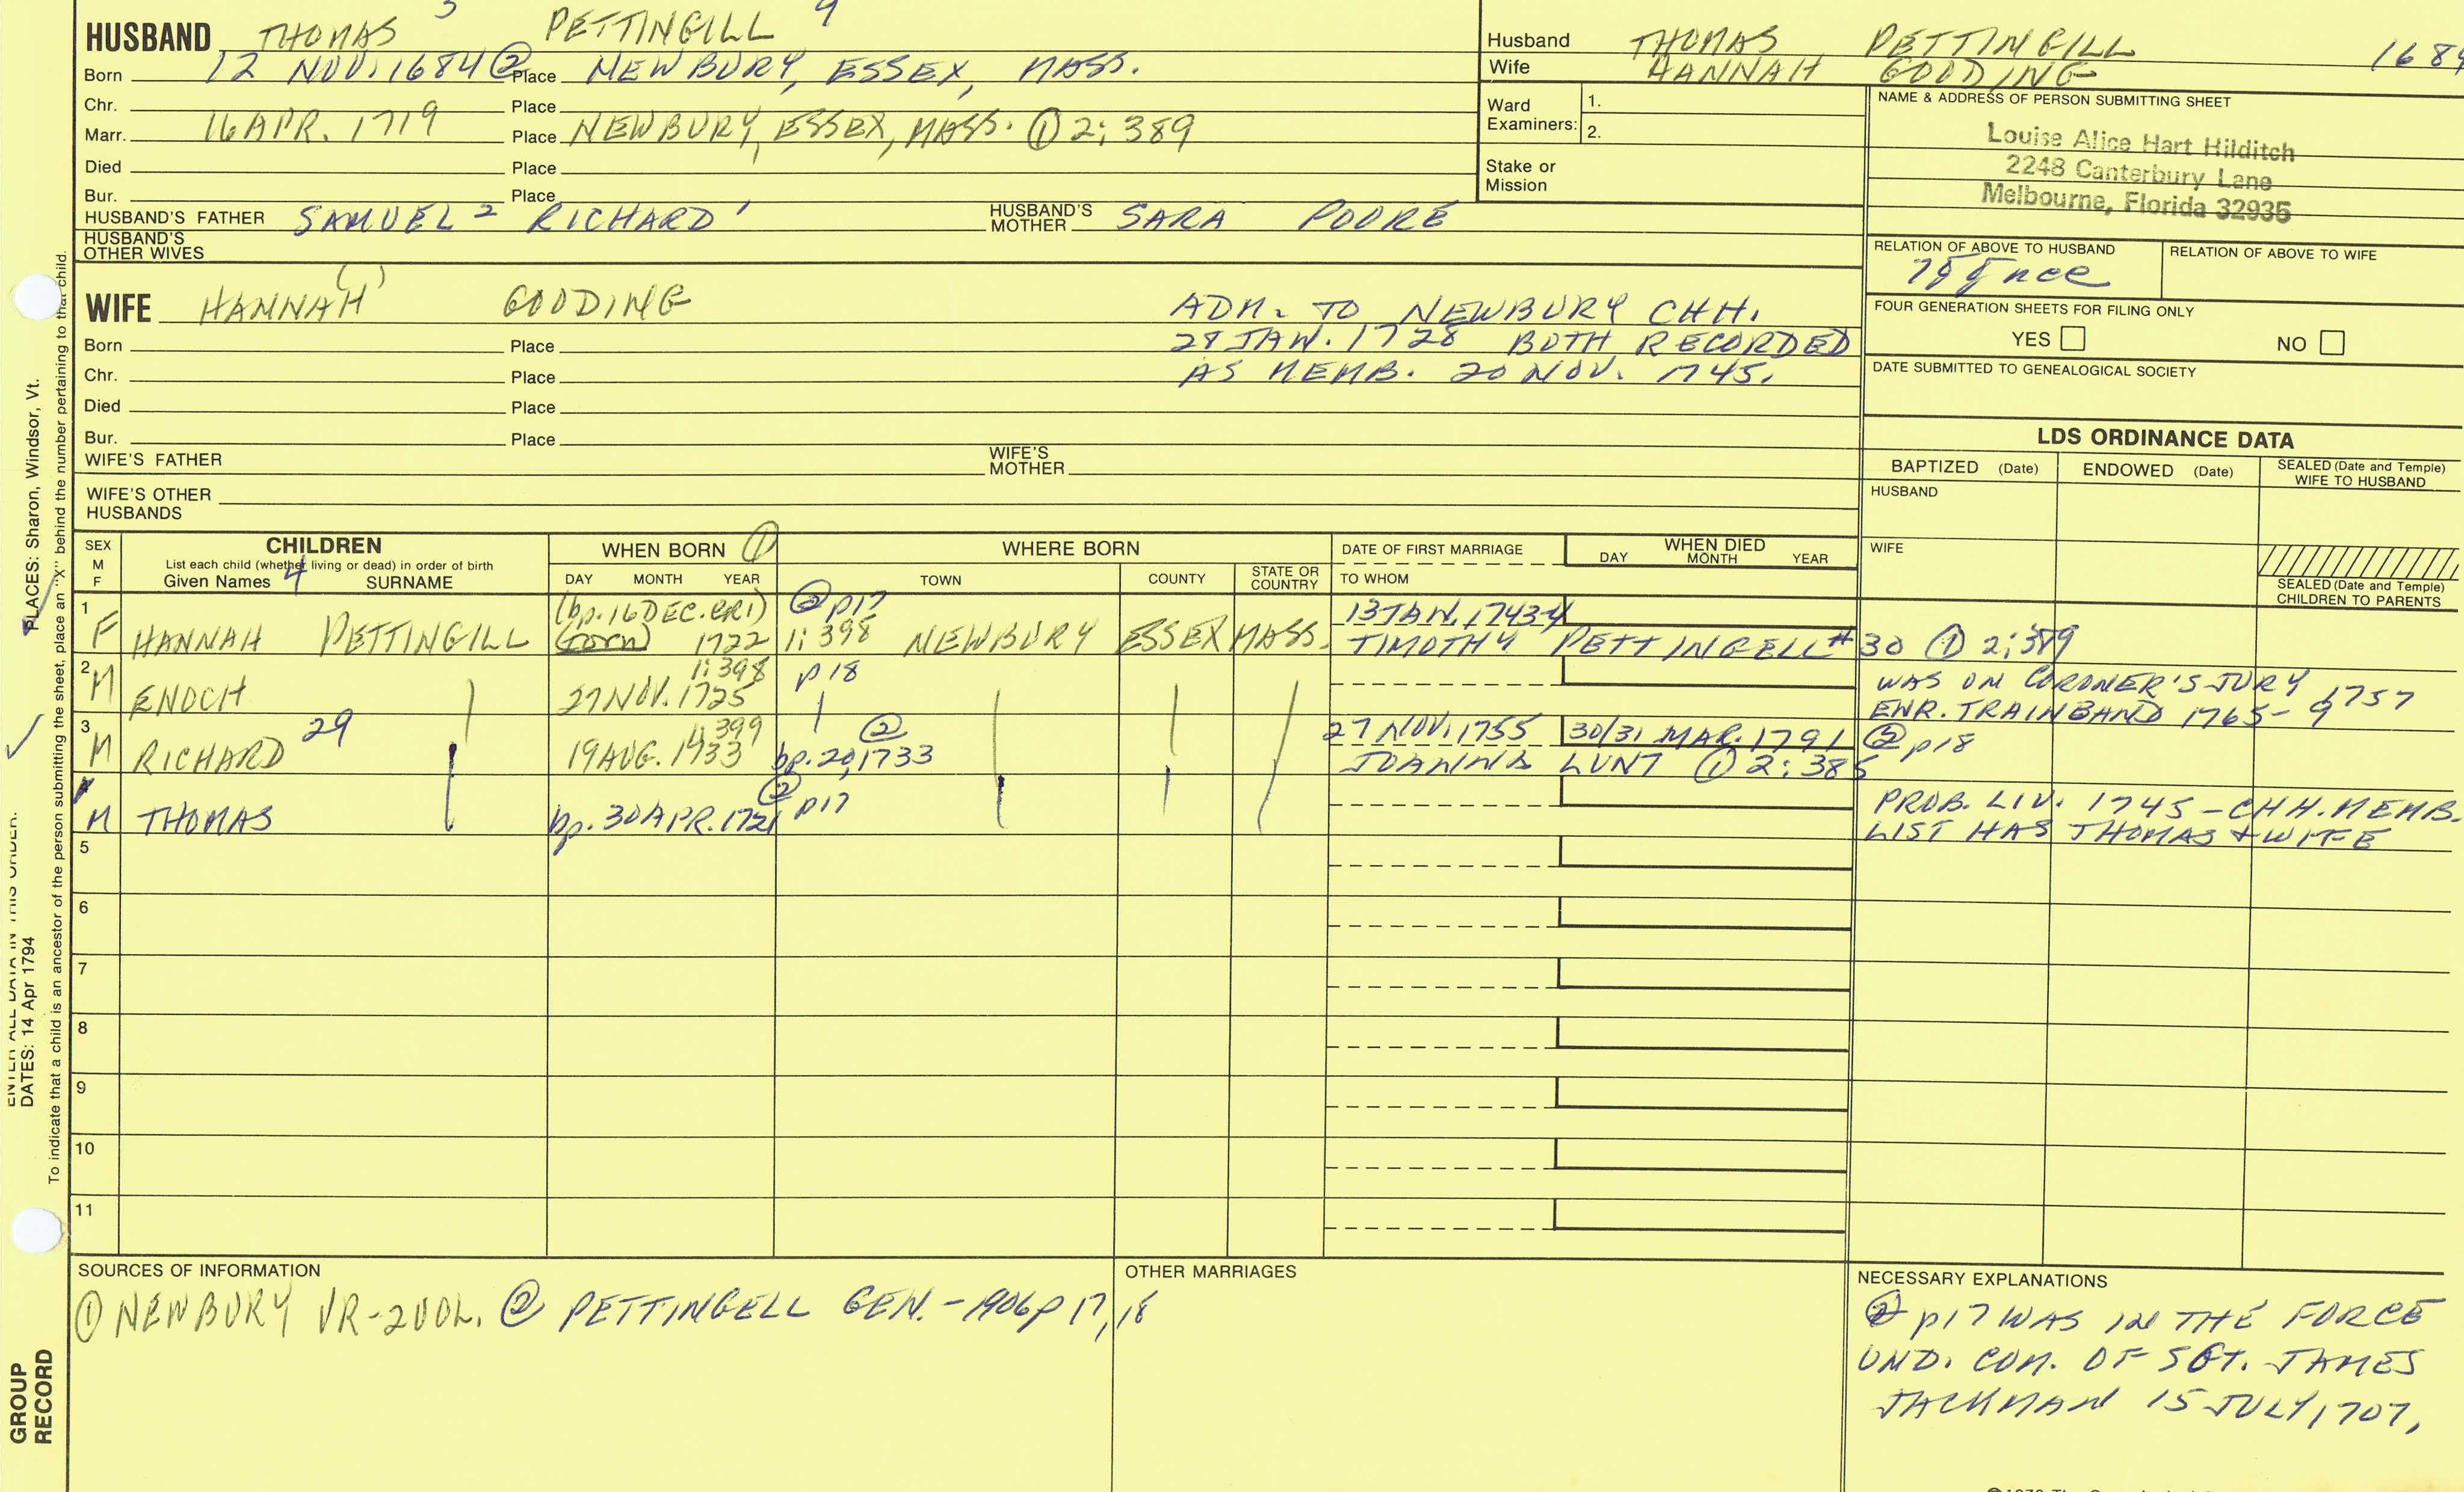 HUSBAND THOMAS 3 PETTINGILL 9
Born 12 NOV. 1684 ② Place NEWBURY, ESSEX, MASS.
Chr. Place
Marr. 16 APR. 1719 Place NEWBURY, ESSEX, MASS. ① 2:389
Died Place
Bur. Place
HUSBAND'S FATHER SAMUEL 2 RICHARD 1 HUSBAND'S MOTHER SARA POORE
HUSBAND'S OTHER WIVES
Husband THOMAS PETTINGILL 1684
Wife HANNAH GOODING
Ward Examiners: 1.
2.
Stake or Mission
NAME & ADDRESS OF PERSON SUBMITTING SHEET
Louise Alice Hart Hilditch
2248 Canterbury Lane
Melbourne, Florida 32935
RELATION OF ABOVE TO HUSBAND RELATION OF ABOVE TO WIFE
FOUR GENERATION SHEETS FOR FILING ONLY
YES NO
DATE SUBMITTED TO GENEALOGICAL SOCIETY
WIFE HANNAH (1) GOODING
ADM. TO NEWBURY CHH.
28 JAN. 1728 BOTH RECORDED
AS MEMB. 20 NOV. 1745.
Born Place
Chr. Place
Died Place
Bur. Place
WIFE'S FATHER WIFE'S MOTHER
WIFE'S OTHER HUSBANDS
LDS ORDINANCE DATA
BAPTIZED (Date) ENDOWED (Date) SEALED (Date and Temple) WIFE TO HUSBAND
HUSBAND
WIFE
SEALED (Date and Temple) CHILDREN TO PARENTS
SEX M F
CHILDREN
List each child (whether living or dead) in order of birth
Given Names 4 SURNAME
WHEN BORN ①
DAY MONTH YEAR
WHERE BORN
TOWN COUNTY STATE OR COUNTRY
DATE OF FIRST MARRIAGE
TO WHOM
WHEN DIED
DAY MONTH YEAR
1 (bp. 16 DEC. ② p17 13 JAN. 1743-4
F HANNAH PETTINGILL (torn) 1722 1:398 NEWBURY ESSEX MASS. TIMOTHY PETTINGELL #30 ① 2:389
2 1:398 p18 WAS ON CORONER'S JURY 1757
M ENOCH 27 NOV. 1725 ENR. TRAINBAND 1765-9
3 29 1:399 ② 27 NOV. 1755 30/31 MAR. 1791 ② p18
M RICHARD 19 AUG. 1733 bp. 20, 1733 JOANNA LUNT ① 2:385
4 ② p17 PROB. LIV. 1745 - CHH. MEMB.
M THOMAS bp. 30 APR. 1721 LIST HAS THOMAS + WIFE
5
6
7
8
9
10
11
SOURCES OF INFORMATION
① NEWBURY VR-2VOL. ② PETTINGELL GEN. - 1906 p 17, 18
OTHER MARRIAGES
NECESSARY EXPLANATIONS
② p17 WAS IN THE FORCE
UND. COM. OF SGT. JAMES
JACKMAN 15 JULY, 1707,
PLACES: Sharon, Windsor, Vt.
ENTER ALL DATA IN THIS ORDER:
DATES: 14 Apr 1794
To indicate that a child is an ancestor of the person submitting the sheet, place an "X" behind the number pertaining to that child.
GROUP RECORD